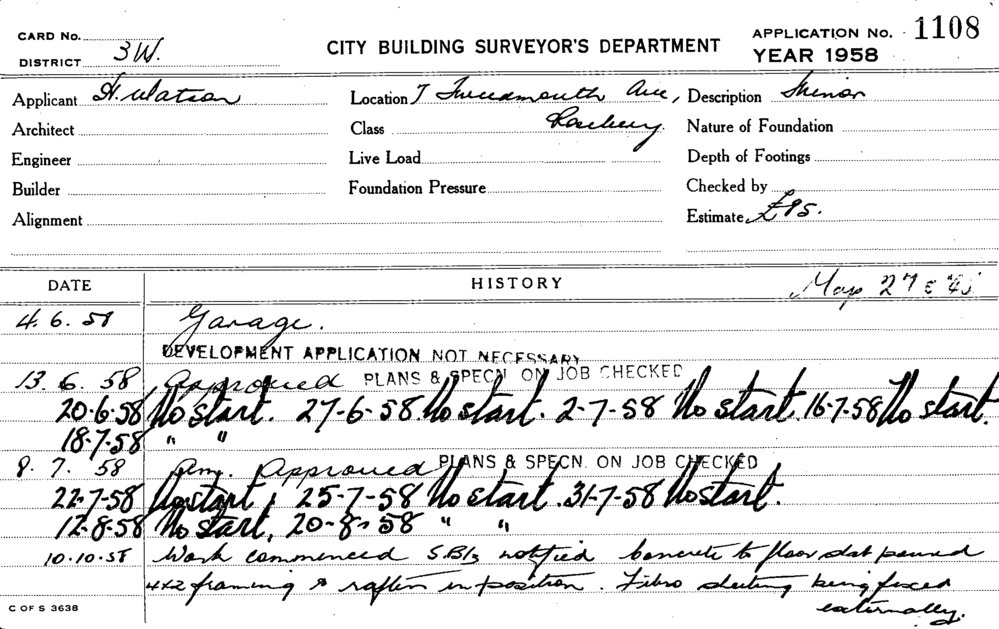 CARD No.
DISTRICT 3W.
CITY BUILDING SURVEYOR'S DEPARTMENT
APPLICATION No. 1108
YEAR 1958
Applicant H. Watson
Location 7 Tweedmouth Ave, Rosebery
Description Minor
Architect
Class
Nature of Foundation
Engineer
Live Load
Depth of Footings
Builder
Foundation Pressure
Checked by
Alignment
Estimate £95.
DATE HISTORY Map 27
4. 6. 58 Garage.
DEVELOPMENT APPLICATION NOT NECESSARY
13. 6. 58 Approved PLANS & SPECN ON JOB CHECKED
20-6-58 No start. 27-6-58 No start. 2-7-58 No start. 16-7-58 No start.
18-7-58 " "
8. 7. 58 Am. Approved PLANS & SPECN. ON JOB CHECKED
22-7-58 No start, 25-7-58 No start. 31-7-58 No start.
12-8-58 No start, 20-8-58 " "
10.10.58 Work commenced notified concrete to floor slab poured
4x2 framing & rafters in position. Fibro sheeting being fixed
externally.
C OF S 3638